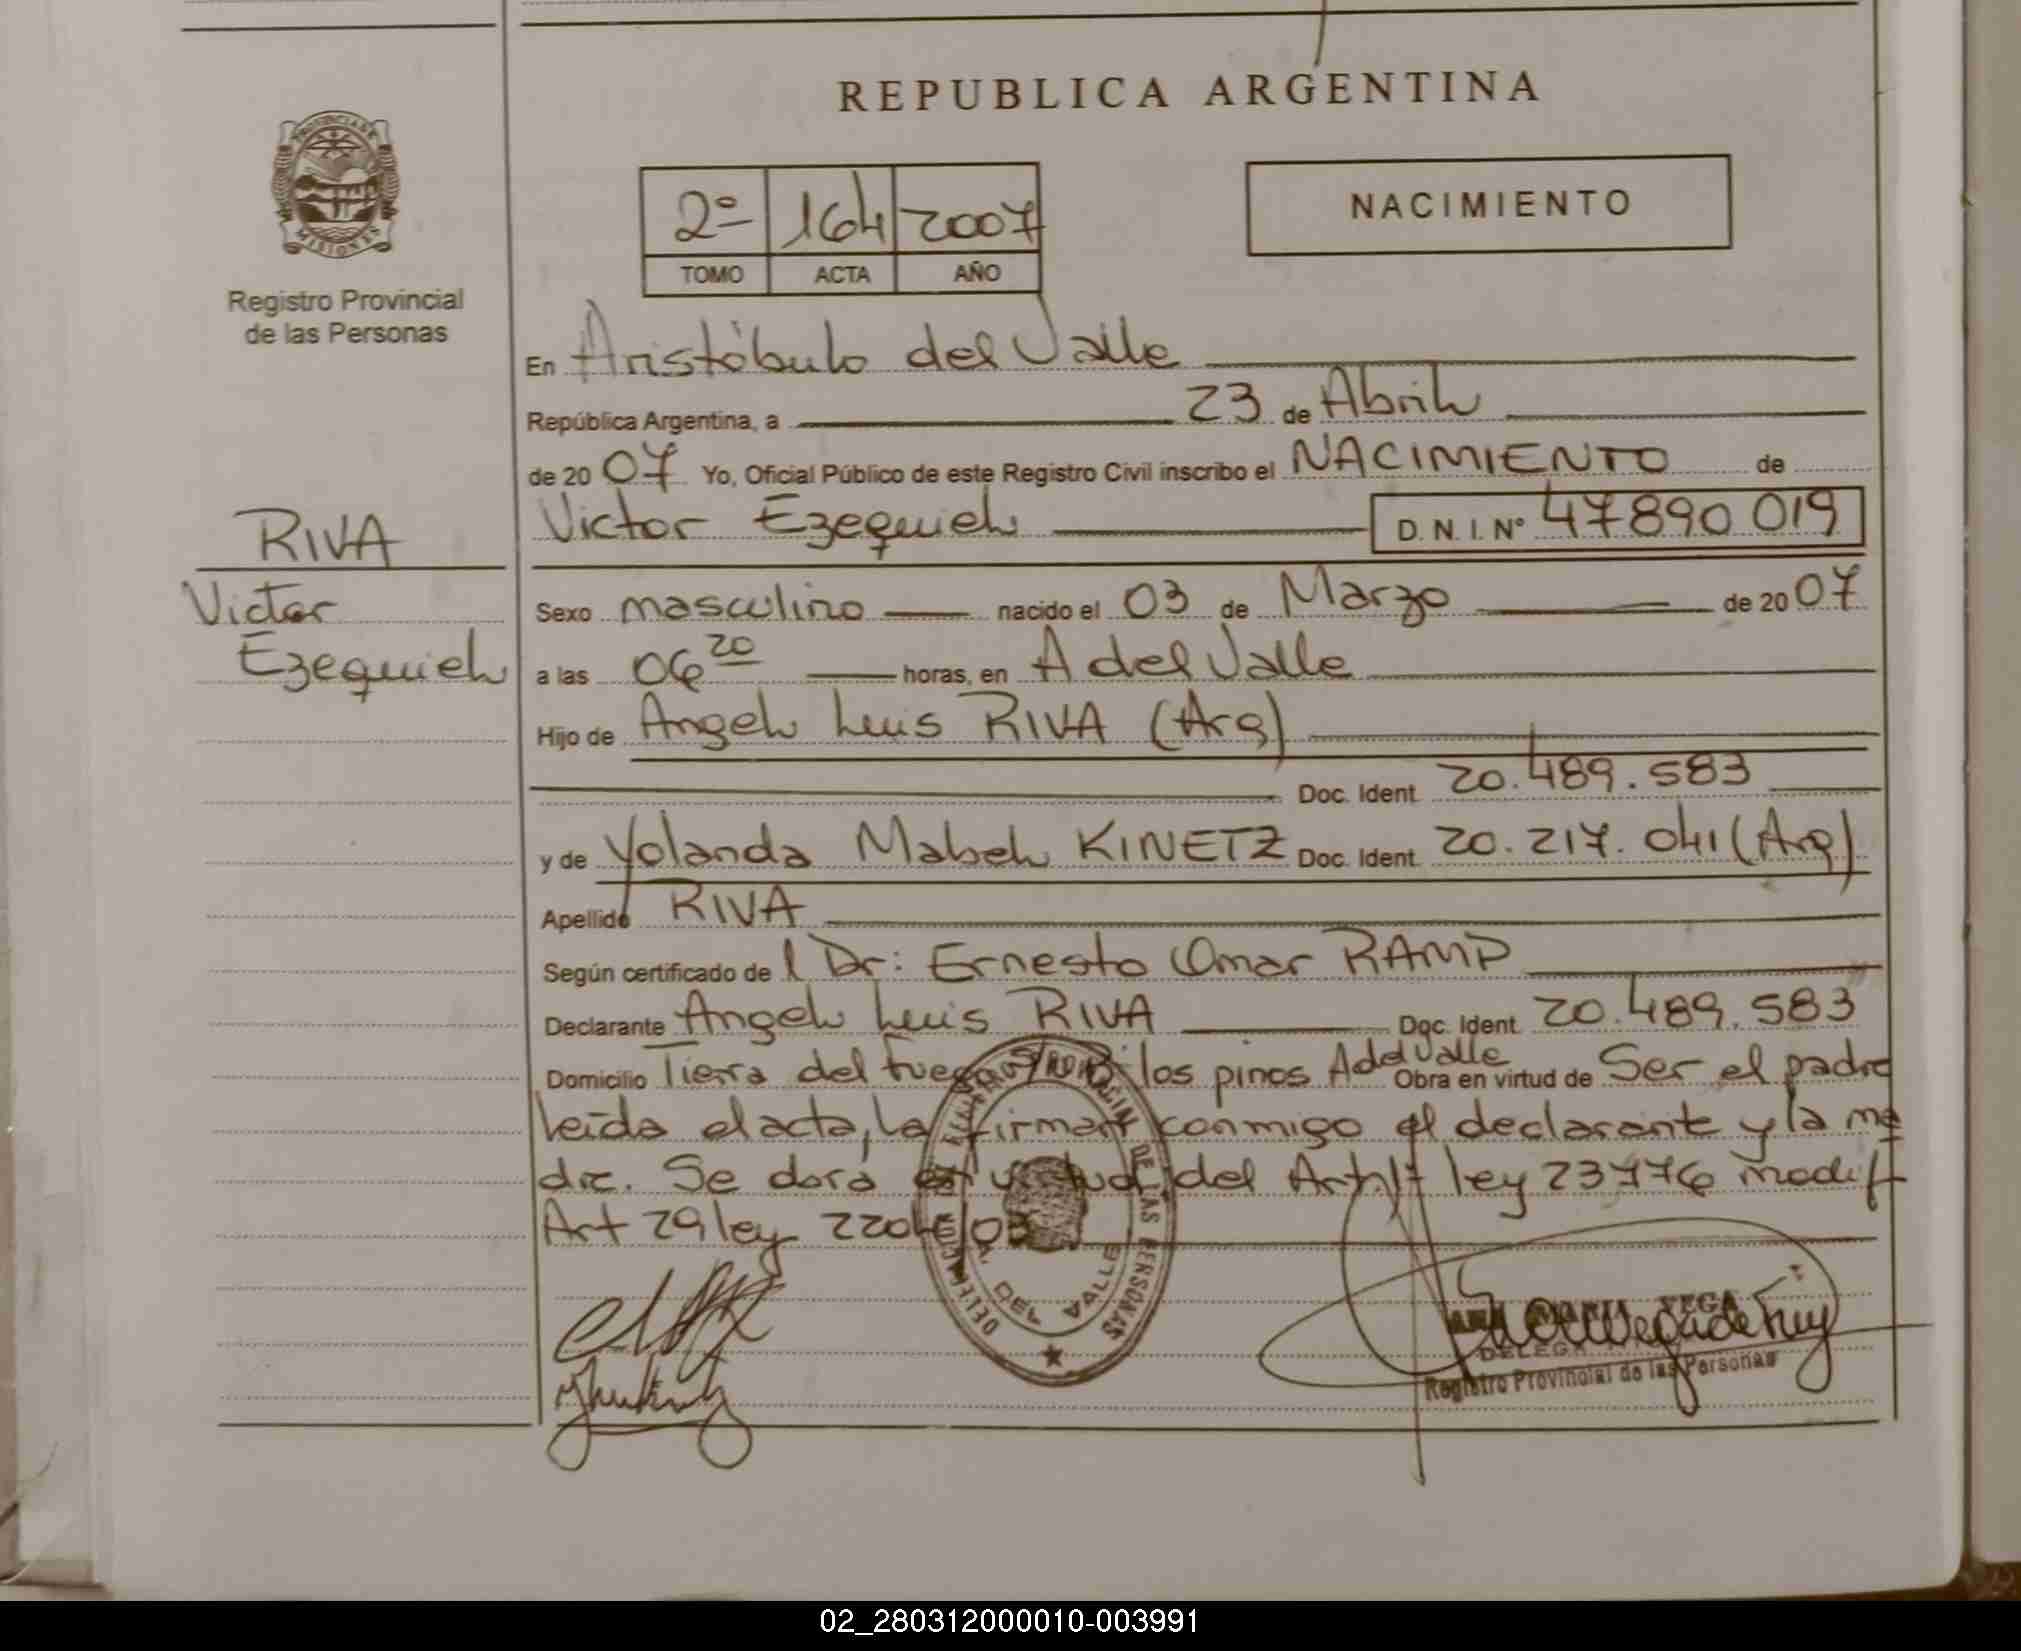 REPUBLICA ARGENTINA
PROVINCIA DE
MISIONES
Registro Provincial
de las Personas
2º 164 2007
TOMO ACTA AÑO
NACIMIENTO
En Aristóbulo del Valle
República Argentina, a 23 de Abril
de 20 07 Yo, Oficial Público de este Registro Civil inscribo el NACIMIENTO de
RIVA
Victor
Ezequiel
Victor Ezequiel D.N.I.Nº 47890019
Sexo masculino nacido el 03 de Marzo de 20 07
a las 06 20 horas, en A del Valle
Hijo de Angel Luis RIVA (Arg)
Doc. Ident 20.489.583
y de Yolanda Mabel KINETZ Doc. Ident 20.217.041 (Arg)
Apellido RIVA
Según certificado de l Dr: Ernesto Omar RAMP
Declarante Angel Luis RIVA Doc. Ident 20.489.583
Domicilio Tierra del Fuego los pinos A del Valle Obra en virtud de Ser el padre
leída el acta, la firman conmigo el declarante y la ma
dre. Se dora en virtud del Art ley 23776 modif
Art 29 ley
DE LAS PERSONAS
DEL VALLE
VEGA
Registro Provincial de las Personas
02_280312000010-003991